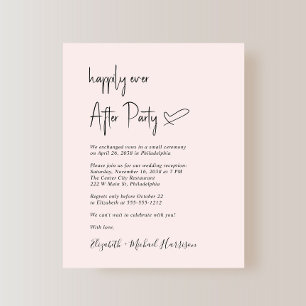 happily ever
After Party
We exchanged vows in a small ceremony
on April 26, 2030 in Philadelphia
Please join us for our wedding reception:
Saturday, November 16, 2030 at 7 PM
The Center City Restaurant
222 W Main St, Philadelphia
Regrets only before October 22
to Elizabeth at 555-555-2212
We can't wait to celebrate with you!
With love,
Elizabeth + Michael Harrison